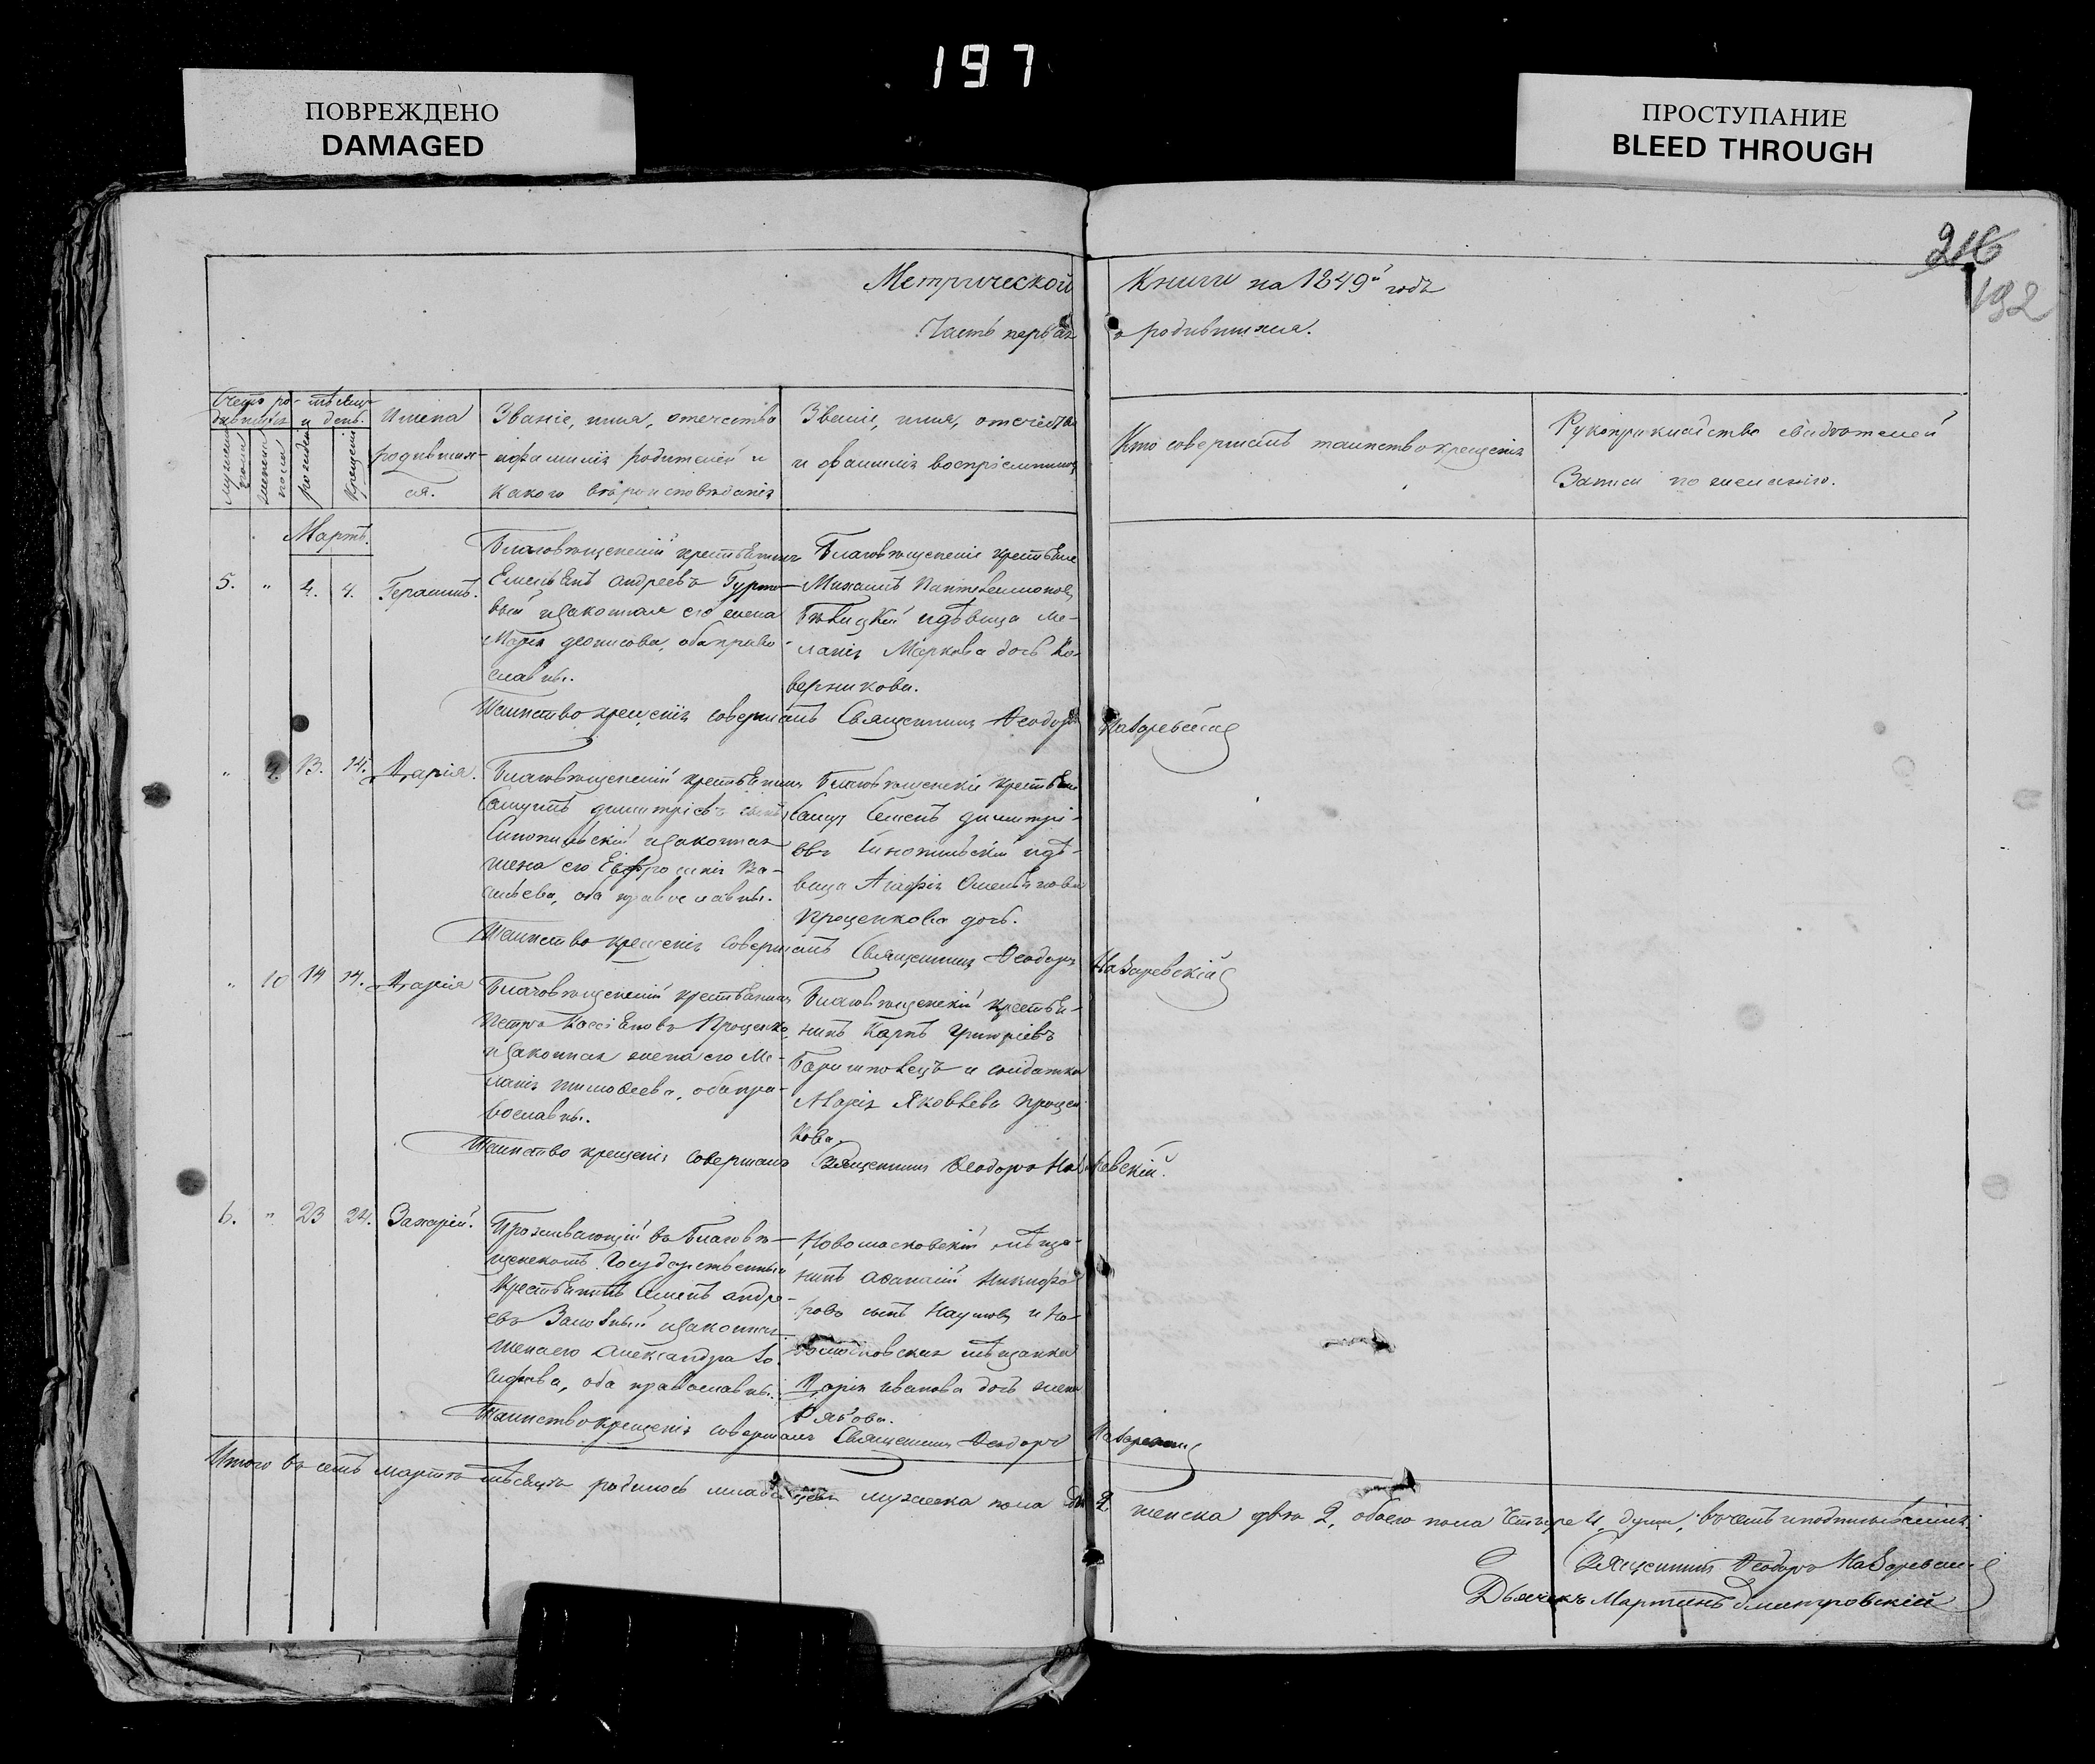 197
ПОВРЕЖДЕНО
DAMAGED
ПРОСТУПАНИЕ
BLEED THROUGH
216
192
Метрической Книги на 1849й годъ
Часть первая о родившихся.
Счетъ ро- мѣсяцъ
дившихся и день.
мужеска пола
женска пола
рожденія
Крещенія
Имена
родивших-
ся.
Званіе, имя, отечество
и фамилія родителей и
какого вѣроисповѣданія
Званіе, имя, отечество
и фамилія воспріемниковъ
Кто совершалъ таинство крещенія
Рукоприкладство свидѣтелей
Записи по желанію.
Мартъ.
5. " 4. 4. Герасимъ.
Благовѣщенскій крестьянинъ
Емельянъ Андреевъ
и законная его жена
Марія Денисова, оба право-
славны.
Благовѣщенскіе крестьяне
Михаилъ Пантелеимоновъ
Бѣлицкій и дѣвица Ме-
ланія Маркова дочь Ко-
верникова.
Таинство крещенія совершалъ Священникъ Ѳеодоръ Назаревскій
" 9. 13. 14. Дарія.
Благовѣщенскій крестьянинъ
Самуилъ Димитріевъ сынъ
Синопильскій и законная
жена его Евфросинія Ва-
сильева, оба православны.
Благовѣщенскіе крестьяне
Семенъ Димитрі-
евъ Синопильскій и дѣ-
вица Агафія Омельянова
Проценкова дочь.
Таинство крещенія совершалъ Священникъ Ѳеодоръ Назаревскій
" 10 14 14. Дарія
Благовѣщенскій крестьянинъ
Петръ Кассіановъ Проценко
и законная жена его Ме-
ланія Тимоѳеева, оба пра-
вославны.
Благовѣщенскій крестья-
нинъ Карпъ Григоріевъ
и солдатка
Марія Яковлева Процен-
кова.
Таинство крещенія совершалъ Священникъ Ѳеодоръ Назаревскій.
6. " 23 24. Захарій.
Проживающій въ Благовѣ-
щенскомъ Государственный
Крестьянинъ Семенъ Андре-
евъ и законная
жена его Александра Іо-
сифова, оба православны.
Новомосковскій мѣща-
нинъ Аѳанасій Никифо-
ровъ сынъ Наумовъ и Но-
вомосковская мѣщанка
Дарія Иванова дочь жена
Рябова.
Таинство крещенія совершалъ Священникъ Ѳеодоръ Назаревскій
Итого въ семъ мартѣ мѣсяцѣ родилось младенцевъ мужеска пола два 2 женска двѣ 2, обоего пола четыре 4, души, въ чемъ и подписываемся.
Священникъ Ѳеодоръ Назаревскій
Дьячекъ Мартинъ Дмитровскій